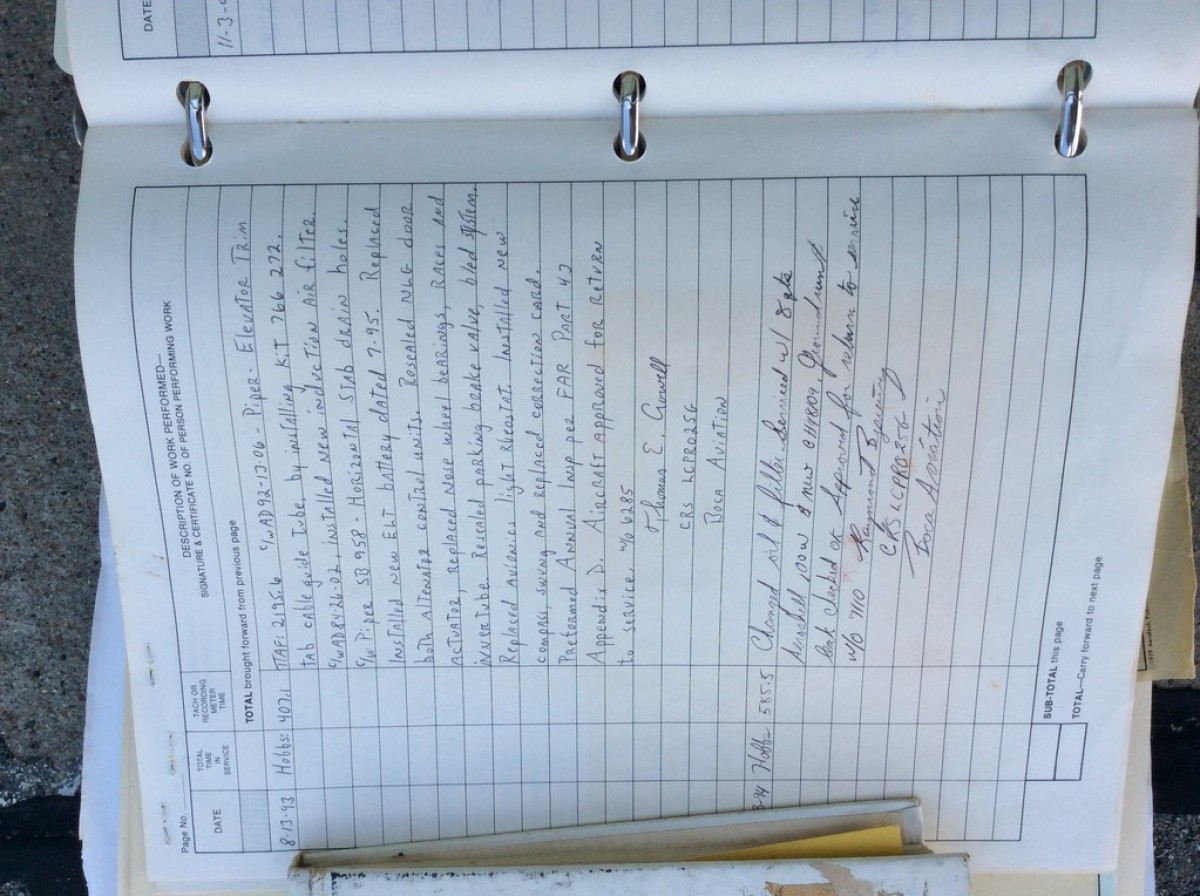 DATE
11-3-
Page No.
DATE
TOTAL TIME IN SERVICE
TACH OR RECORDING METER TIME
DESCRIPTION OF WORK PERFORMED—
SIGNATURE & CERTIFICATE NO. OF PERSON PERFORMING WORK
TOTAL brought forward from previous page
8-13-93 Hobbs: 407.1 TTAF: 2195.6 C/W AD 92-13-06 - Piper - Elevator Trim
tab cable guide tube, by installing Kit 766 272.
C/W AD84-26-02, installed new induction Air filter.
C/W Piper SB 958 - Horizontal STAB drain holes.
Installed new ELT battery dated 7-95. Replaced
both Alternator control units. Resealed NLG door
Actuator, Replaced Nose wheel bearings, Races and
innertube. Resealed parking brake valve, bled system.
Replaced Avionics light Rheostat. Installed new
compass, swung and replaced correction card.
Preformed Annual Insp per FAR Part 43
Appendix D. Aircraft Approved for Return
to service. W/O 6285
Thomas E. Crowell
CRS LCPR025G
Boca Aviation
-94 Hobbs 585.5 Changed oil & filter. Serviced w/ 8 qts
Aeroshell 100W & new CH48109. Ground run &
leak checked ok. Approved for return to service
W/O 7110 Raymond B
CRS LCPR025G
Boca Aviation
SUB-TOTAL this page
TOTAL—Carry forward to next page